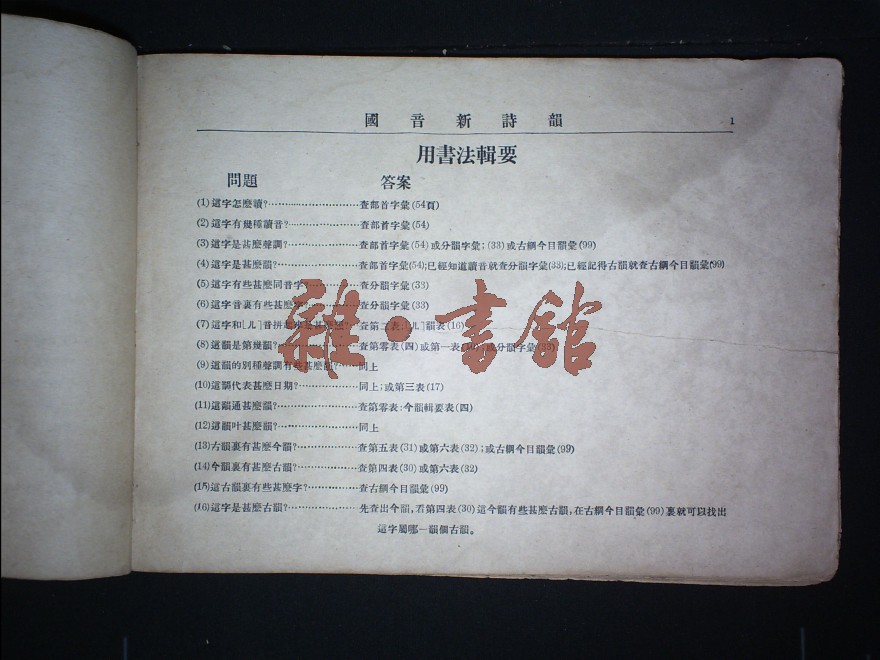 國音新詩韻 1
用書法輯要
問題 答案
(1)這字怎麼讀?……………………查部首字彙(54頁)
(2)這字有幾種讀音?………………查部首字彙(54)
(3)這字是甚麼聲調?………………查部首字彙(54)或分韻字彙;(33)或古綱今目韻彙(99)
(4)這字是甚麼韻?…………………查部首字彙(54);已經知道讀音就查分韻字彙(33);已經記得古韻就查古綱今目韻彙(99)
(5)這字有些甚麼同音字?…………查分韻字彙(33)
(6)這字音裏有些甚麼字?…………查分韻字彙(33)
(7)這字和[ㄦ]音拼起來是甚麼韻?查第二表:[ㄦ]韻表(16)
(8)這韻是第幾韻?…………………查第零表(四)或第一表 或分韻字彙(33)
(9)這韻的別種聲調有些甚麼韻?…同上
(10)這韻代表甚麼日期?……………同上;或第三表(17)
(11)這韻通甚麼韻?…………………查第零表:今韻輯要表(四)
(12)這韻叶甚麼韻?…………………同上
(13)古韻裏有甚麼今韻?……………查第五表(31)或第六表(32);或古綱今目韻彙(99)
(14)今韻裏有甚麼古韻?……………查第四表(30)或第六表(32)
(15)這古韻裏有些甚麼字?…………查古綱今目韻彙(99)
(16)這字是甚麼古韻?………………先查出今韻,看第四表(30)這今韻有些甚麼古韻,在古綱今目韻彙(99)裏就可以找出
這字屬哪一韻個古韻。
雜·書館